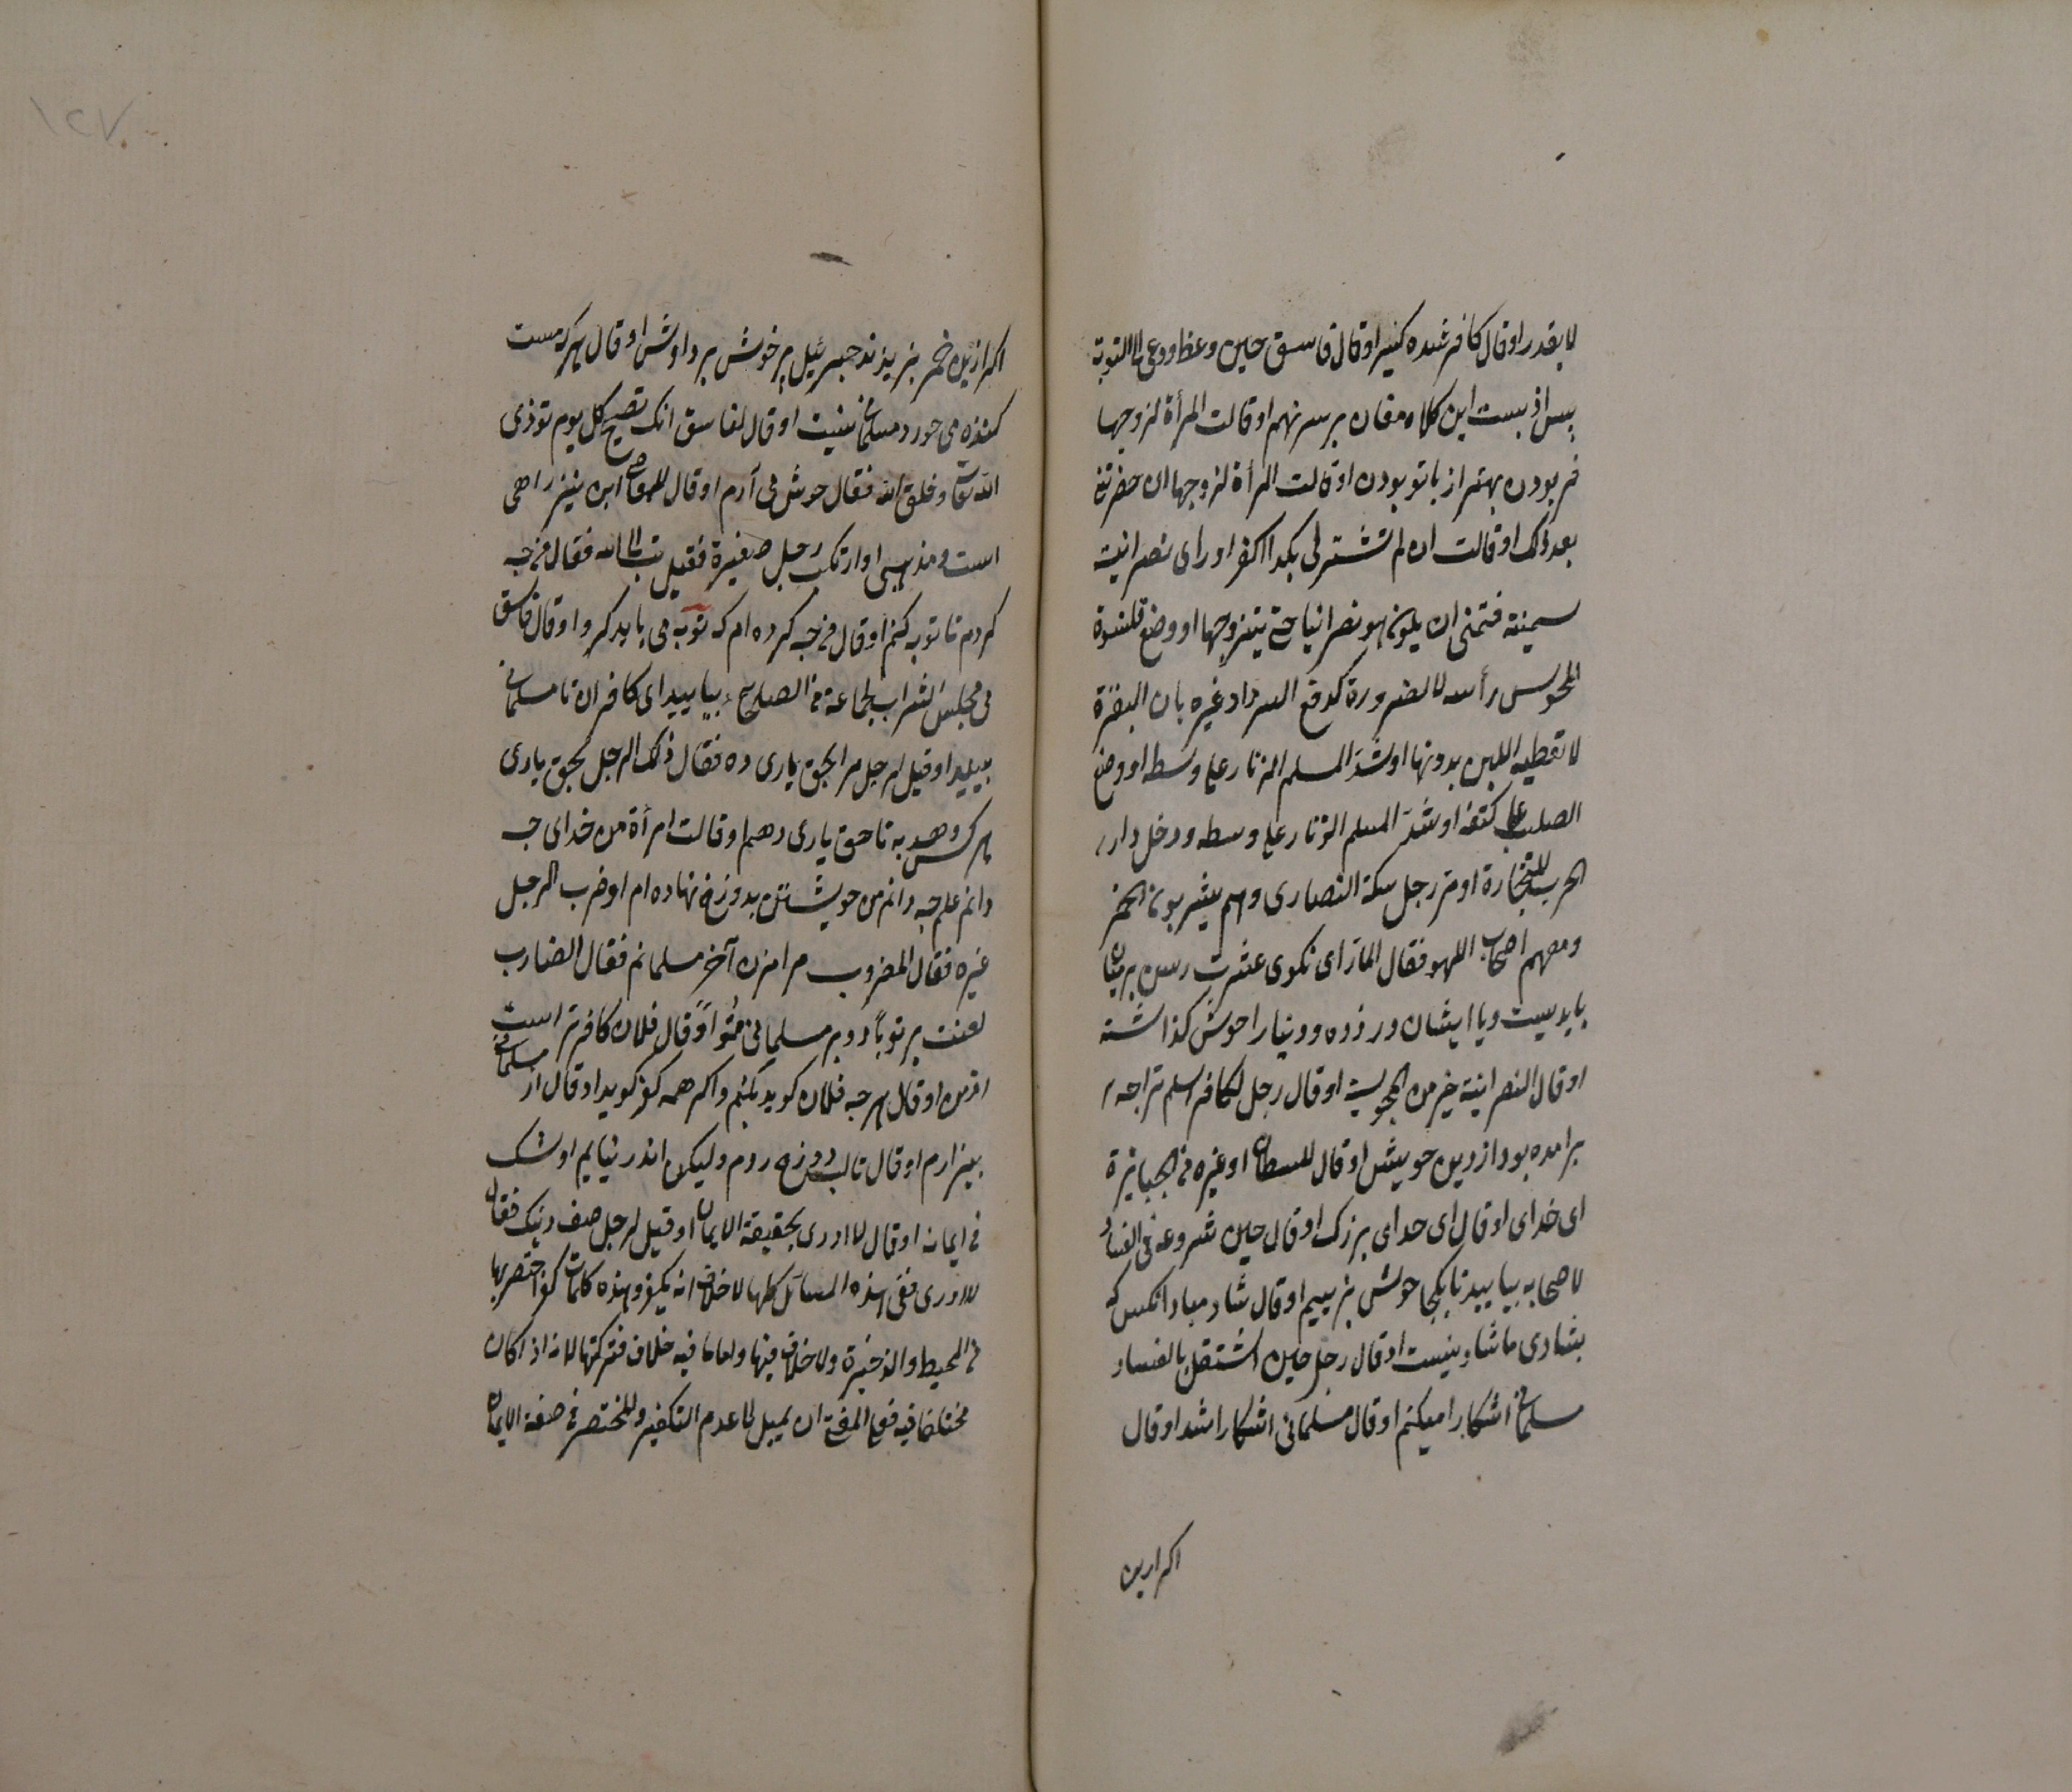 لا بقدر او قال كافر شده كبير او قال فاسق حين وعظ ودعى الى التوبة
پس از بست اين كلاه مغان بر سر نهم او قالت المرأة لزوجها
خر بودن بهتر از با تو بودن او قالت المرأة لزوجها ان جفوتنى
بعد ذلك او قالت ان لم تشتر لى بكذا اكفر او راى نصرانية
سمينة فتمنى ان يكون هو نصرانيا حتى يتزوجها او وضع قلنسوة
المجوس رأسه لا لضرورة كدفع البرد او غيره بان البقرة
لا تعطيه اللبن بدونها او شدّ المسلم الزنار على وسطه او وضع
الصليب على كتفه او شدّ المسلم الزنار على وسطه ودخل دار
الحرب للتجارة او مر رجل سكة النصارى وهم يشربون الخمر
ومعهم اصحاب اللهو فقال المار اى نكوى عشرت رسن بر ميان
بايد بست وبا ايشان ور زده ودنيا را خوش گذاشته
او قال النصرانية خير من المجوسية او قال رجل لكافر اسلم ترا چه
بر آمده بود از دين خويش او قال للسلطان او غيره من الجبابرة
اى خداى او قال اى خداى بزرگ او قال حين شروعه فى الفساد
لاصحابه بياييد تا يكجا خوش بزييم او قال شاد مباد انكس كه
بشادى ما شاد نيست او قال رجل حين اشتغل بالفساد
مسلمانى اشكارا ميكنم او قال مسلمانى اشكارا شد او قال
اكر ازين
اكر ازين خمر بريزند جبرئيل پر خويش بر دارش او قال هر كه مست
كننده مى خورد مسلمان نيست او قال لفاسق انك تصبح كل يوم توذى
الله تعالى وخلق الله فقال خوش مى آرم او قال للمعاصى اين نيز راهى
است ومذهبى او ارتكب رجل صغيرة فقيل تب الى الله فقال من چه
كردم تا توبه كنم او قال من چه كرده ام كه توبه مى بايد كرد او قال فاسق
فى مجلس الشراب لجماعة من الصلحاء بياييد اى كافران تا مسلمانى
ببينيد او قيل لرجل مرا بحق يارى ده فقال ذلك الرجل بحق يارى
هر كس دهد به ناحق يارى دهم او قالت امرأة من خداى چه
دانم علم چه دانم من خويشتن بدوزخ نهاده ام او ضرب الرجل
غيره فقال المضروب مرا مزن آخر مسلمانم فقال الضارب
لعنت بر تو باد و بر مسلمانى تو او قال فلان كافرتر است
از من او قال هر چه فلان كويد بكنم واكر همه كفر كويد او قال از مسلمانى
بيزارم او قال تا لب دوزخ روم وليكن اندر نيايم او شك
فى ايمانه او قال لا ادرى بحقيقة الايمان او قيل لرجل صف دينك فقال
لا ادرى ففى هذه المسائل كلها لا خلاف انه يكفر وهذه كلمات كفر اختصرتها
من المحيط والذخيرة ولا خلاف فيها واما ما فيه خلاف فتركتها لانه اذا كان
مختلفا فيه فعلى المفتى ان يميل الى عدم التكفير وللمختصر فى صفة الايمان
١٢٧